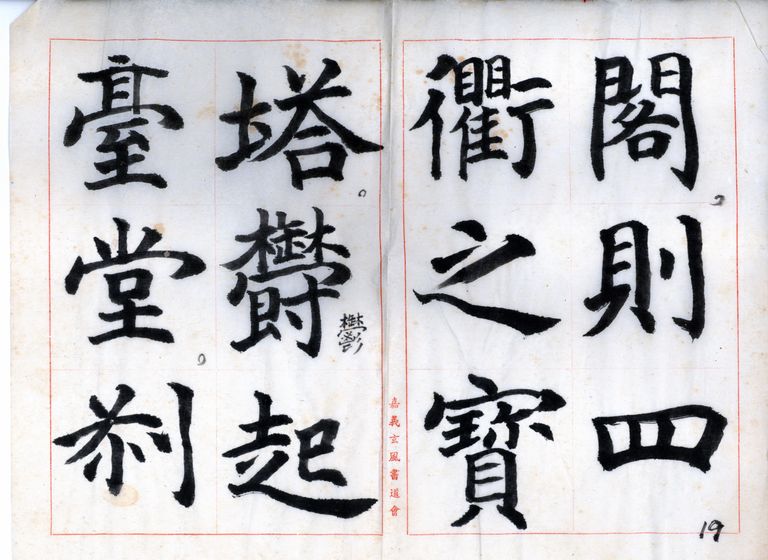 閣。則四
衢之寶
塔。鬱起
鬱
臺堂。剎
嘉義玄風書道會
19